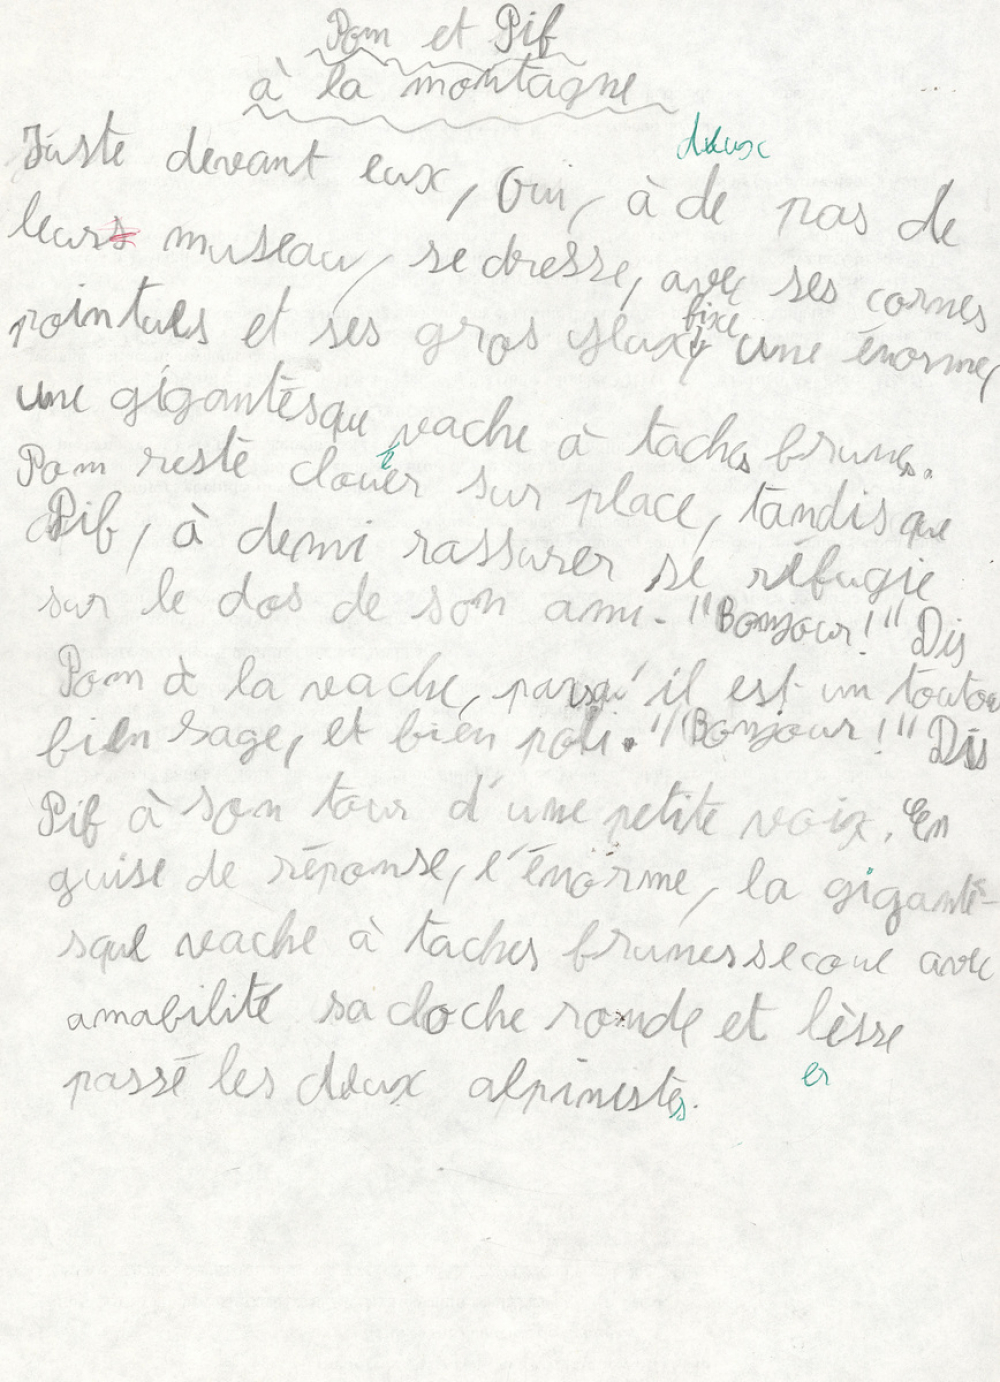 Pom et Pif
à la montagne
deux
Juste devant eux, Oui, à de pas de
leurs museau, se dresse, avec ses cornes
fixe
pointues et ses gros yeux une énorme,
une gigantèsque vache à taches brunes.
Pom resté clouér sur place, tandis que
Pif, à demi rassurer se réfugie
sur le dos de son ami. "Bonjour!" Dis
Pom à la vache, parsqu' il est un toutou
bien sage, et bien poli. "Bonjour!" Dis
Pif à son tour d'une petite voix. En
guise de réponse, l'énorme, la giganté-
sque vache à taches brunes secoue avec
amabilité sa cloche ronde et lèsse
passé les deux alpinistes. er